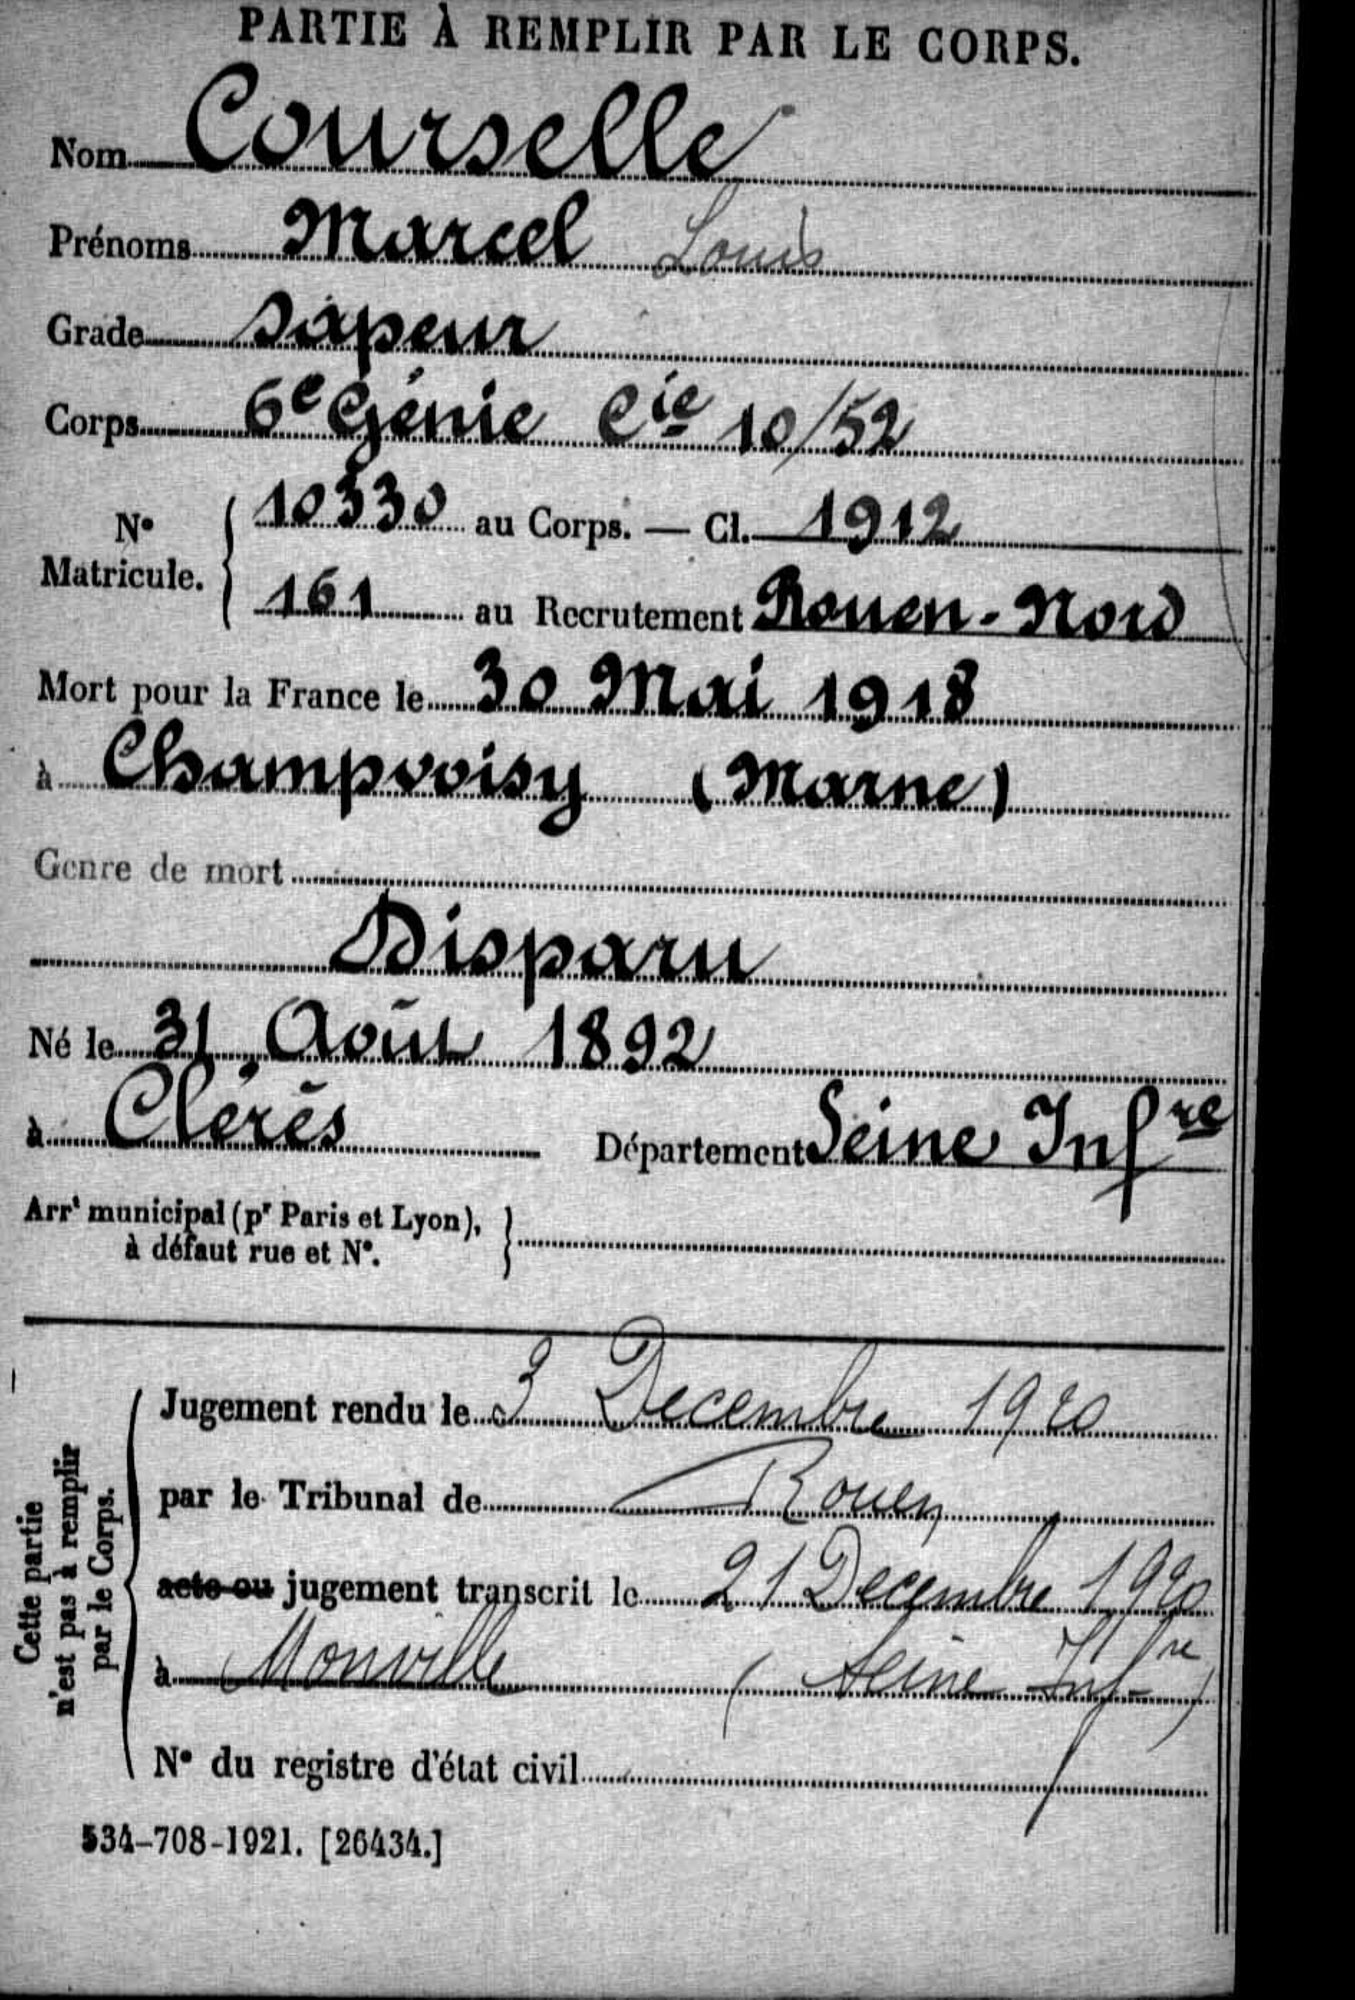 PARTIE À REMPLIR PAR LE CORPS.
Nom Courselle
Prénoms Marcel Louis
Grade Sapeur
Corps 6e Génie Cie 10/52
N° Matricule. { 10330 au Corps. — Cl. 1912
161 au Recrutement Rouen-Nord
Mort pour la France le 30 Mai 1918
à Champvoisy (Marne)
Genre de mort
Disparu
Né le 31 Août 1892
à Clérès Département Seine Infre
Arrt municipal (pr Paris et Lyon), }
à défaut rue et N°.
Cette partie
n'est pas à remplir
par le Corps.
Jugement rendu le 3 Decembre 1920
par le Tribunal de Rouen
acte ou jugement transcrit le 21 Decembre 1920
à Monville (Seine Infre)
N° du registre d'état civil
534-708-1921. [26434.]